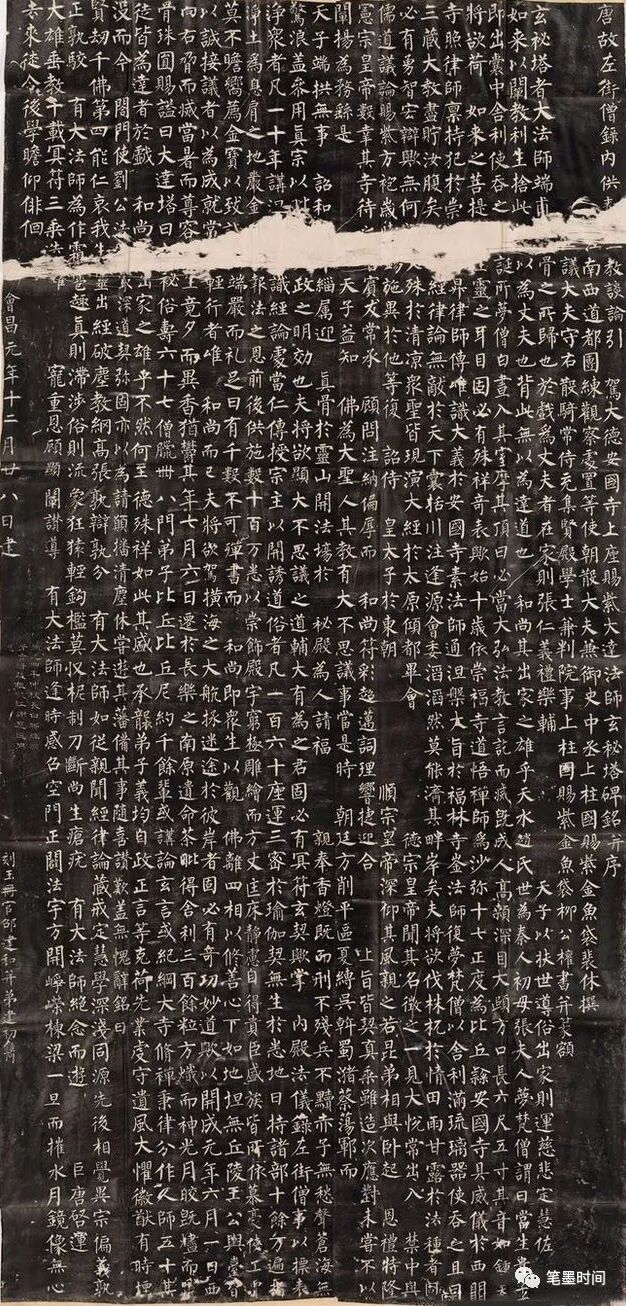 唐故左街僧錄內供 教談論引 駕大德安國寺上座賜紫大達法師玄秘塔碑銘并序
南西道都團練觀察處置等使朝散大夫兼御史中丞上柱國賜紫金魚袋裴休撰
議大夫守右散騎常侍充集賢殿學士兼判院事上柱國賜紫金魚袋柳公權書并篆額
玄秘塔者大法師端甫 骨之所歸也於戲為丈夫者在家則張仁義禮樂輔 天子以扶世導俗出家則運慈悲定慧佐
如來以闡教利生捨此 以為丈夫也背此無以為達道也 和尚其出家之雄乎天水趙氏世為秦人初母張夫人夢梵僧謂曰當生貴子
即出囊中舍利使吞之 誕所夢僧白晝入其室摩其頂曰必當大弘法教言訖而滅既成人高顙深目大頤方口長六尺五寸其音如鍾夫
將欲荷 如來之菩提 生靈之耳目固必有殊祥奇表歟始十歲依崇福寺道悟禪師為沙彌十七正度為比丘隸安國寺具威儀於西明
寺照律師稟持犯於崇 昇律師傳唯識大義於安國寺素法師通涅槃大旨於福林寺崟法師復夢梵僧以舍利滿琉璃器使吞之且曰
三藏大教盡貯汝腹矣 經律論無敵於天下囊括川注逢源會委滔滔然莫能濟其畔岸矣夫將欲伐株杌於情田雨甘露於法種者固
必有勇智宏辯歟無何 文殊於清涼眾聖皆現演大經於太原傾都畢會 德宗皇帝聞其名徵之一見大悅常出入 禁中與
儒道議論賜紫方袍歲 施異於他等復 詔侍 皇太子於東朝 順宗皇帝深仰其風親之若昆弟相與臥起 恩禮特隆
憲宗皇帝數幸其寺待之 賓友常承 顧問注納偏厚而 和尚符彩超邁詞理響捷迎合 上旨皆契真乘雖造次應對未嘗不以
闡揚為務繇是 天子益知 佛為大聖人其教有大不思議事當是時 朝廷方削平區夏縛吳斡蜀瀦蔡蕩鄆而
天子端拱無事 詔和 緇屬迎 真骨於靈山開法場於 秘殿為人請福 親奉香燈既而刑不殘兵不黷赤子無愁聲蒼海無
驚浪蓋參用真宗以毗 政之明效也夫將欲顯大不思議之道輔大有為之君固必有冥符玄契歟掌 內殿法儀錄左街僧事以標表
淨眾者凡一十年講涅 識經論處當仁傳授宗主以開誘道俗者凡一百六十座運三密於瑜伽契無生於悉地日持諸部十餘萬遍指
淨土為息肩之地嚴金 報法之恩前後供施數十百萬悉以崇飾殿宇窮極雕繪而方丈匡床靜慮自得貴臣盛族皆所依慕豪俠工賈
莫不瞻嚮薦金寶以致誠 端嚴而礼足日有千數不可殫書而 和尚即眾生以觀 佛離四相以修善心下如地坦無丘陵王公輿臺皆
以誠接議者以為成就常 輕行者唯 和尚而已夫將欲駕橫海之大航拯迷途於彼岸者固必有奇功妙道歟以開成元年六月一日西
向右脅而滅當暑而尊容 生竟夕而異香猶鬱其年七月六日遷於長樂之南原遺命荼毗得舍利三百餘粒方熾而神光月皎既燼而靈
骨珠圓賜謚曰大達塔曰 秘俗壽六十七僧臘卌八門弟子比丘比丘尼約千餘輩或講論玄言或紀綱大寺修禪秉律分作人師五十其
徒皆為達者於戲 和尚 出家之雄乎不然何至德殊祥如此其盛也承襲弟子義均自政正言等克荷先業虔守遺風大懼徽猷有時堙
沒而今 閤門使劉公法 深道契弥固亦以為請願播清塵休嘗遊其藩備其事隨喜讚歎蓋無愧辭銘曰
賢劫千佛第四能仁哀我生 靈出經破塵教綱高張孰辯孰分 有大法師如從親聞經律論藏戒定慧學深淺同源先後相覺異宗偏義孰
正孰駮 有大法師為作霜 雹趣真則滯涉俗則流象狂猿輕鉤檻莫收柅制刀斷尚生瘡疣 有大法師絕念而遊 巨唐啓運
大雄垂教千載冥符三乘迭 寵重恩顧顯闡讚導 有大法師逢時感召空門正闢法宇方開崢嶸棟梁一旦而摧水月鏡像無心
去來徒令後學瞻仰俳佪
會昌元年十二月廿八日建 刻玉冊官邵建和并弟建初鐫
笔墨时间